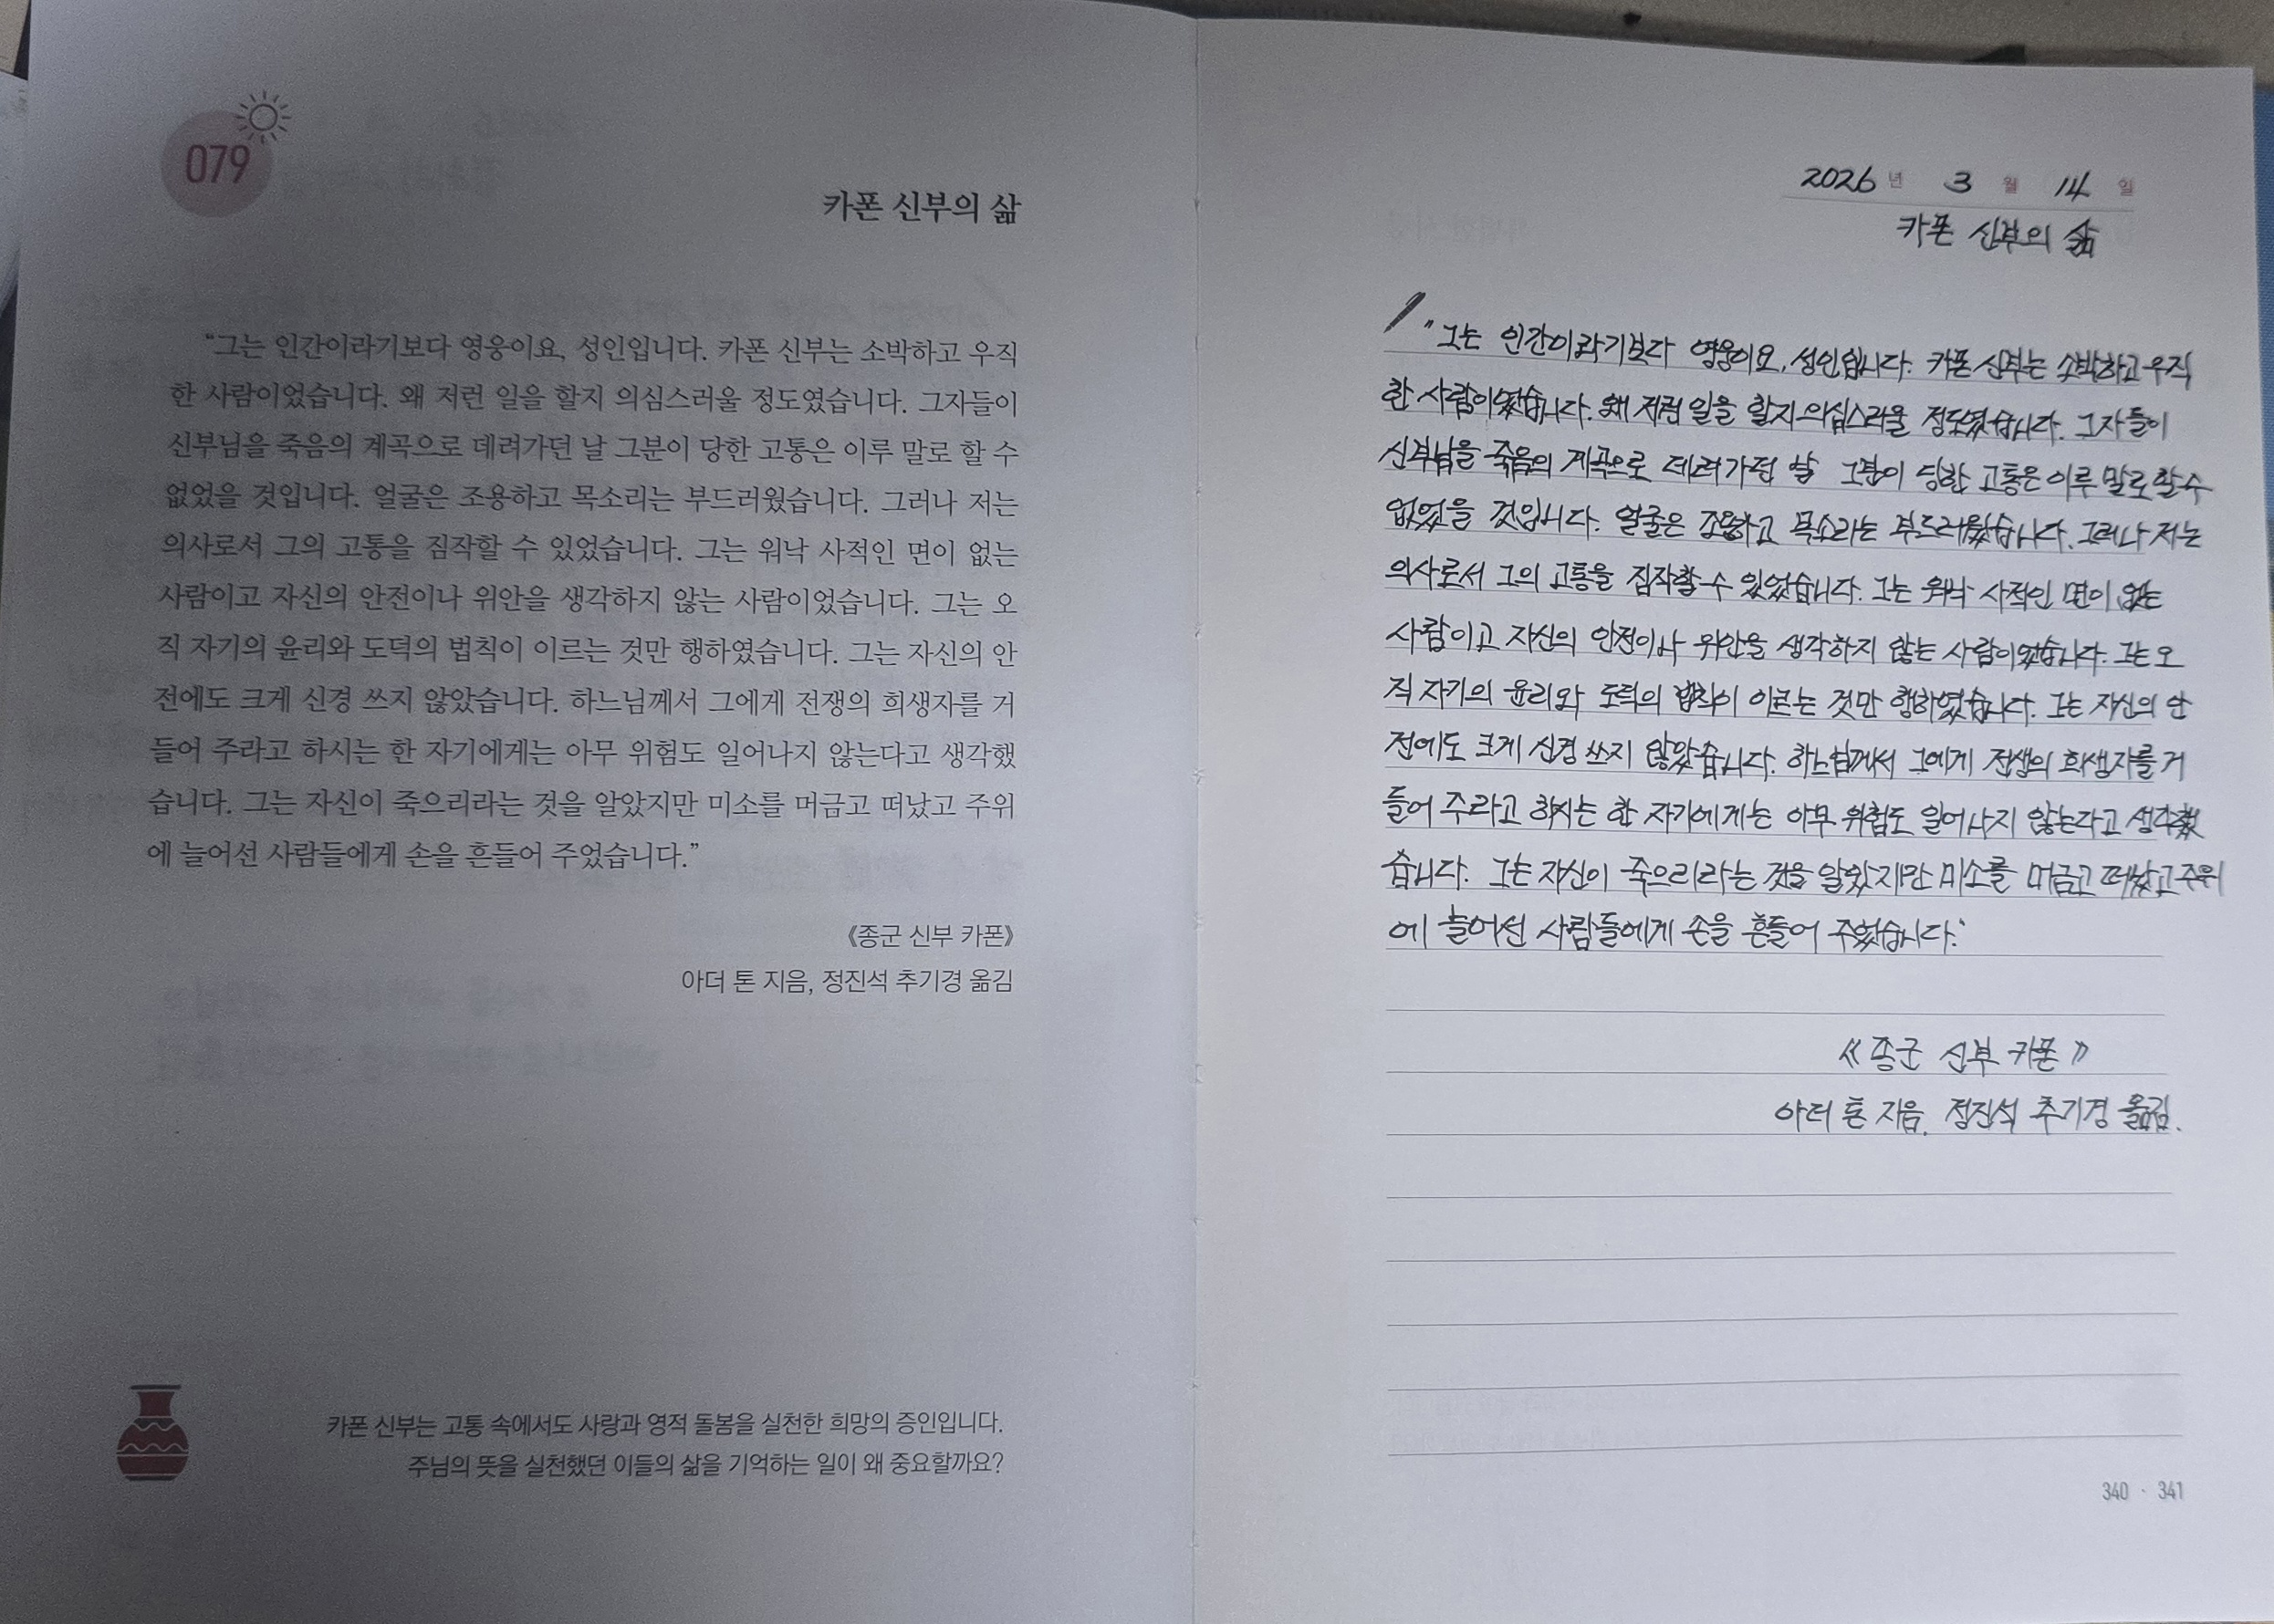 079
카폰 신부의 삶
“그는 인간이라기보다 영웅이요, 성인입니다. 카폰 신부는 소박하고 우직
한 사람이었습니다. 왜 저런 일을 할지 의심스러울 정도였습니다. 그자들이
신부님을 죽음의 계곡으로 데려가던 날 그분이 당한 고통은 이루 말로 할 수
없었을 것입니다. 얼굴은 조용하고 목소리는 부드러웠습니다. 그러나 저는
의사로서 그의 고통을 짐작할 수 있었습니다. 그는 워낙 사적인 면이 없는
사람이고 자신의 안전이나 위안을 생각하지 않는 사람이었습니다. 그는 오
직 자기의 윤리와 도덕의 법칙이 이르는 것만 행하였습니다. 그는 자신의 안
전에도 크게 신경 쓰지 않았습니다. 하느님께서 그에게 전쟁의 희생자를 거
들어 주라고 하시는 한 자기에게는 아무 위험도 일어나지 않는다고 생각했
습니다. 그는 자신이 죽으리라는 것을 알았지만 미소를 머금고 떠났고 주위
에 늘어선 사람들에게 손을 흔들어 주었습니다.”
《종군 신부 카폰》
아더 톤 지음, 정진석 추기경 옮김
카폰 신부는 고통 속에서도 사랑과 영적 돌봄을 실천한 희망의 증인입니다.
주님의 뜻을 실천했던 이들의 삶을 기억하는 일이 왜 중요할까요?
2026 년 3 월 14 일
카폰 신부의 삶
"그는 인간이라기보다 영웅이요, 성인입니다. 카폰 신부는 소박하고 우직
한 사람이었습니다. 왜 저런 일을 할지 의심스러울 정도였습니다. 그자들이
신부님을 죽음의 계곡으로 데려가던 날 그분이 당한 고통은 이루 말로 할 수
없었을 것입니다. 얼굴은 조용하고 목소리는 부드러웠습니다. 그러나 저는
의사로서 그의 고통을 짐작할 수 있었습니다. 그는 워낙 사적인 면이 없는
사람이고 자신의 안전이나 위안을 생각하지 않는 사람이었습니다. 그는 오
직 자기의 윤리와 도덕의 법칙이 이르는 것만 행하였습니다. 그는 자신의 안
전에도 크게 신경 쓰지 않았습니다. 하느님께서 그에게 전쟁의 희생자를 거
들어 주라고 하시는 한 자기에게는 아무 위험도 일어나지 않는다고 생각했
습니다. 그는 자신이 죽으리라는 것을 알았지만 미소를 머금고 떠났고 주위
에 늘어선 사람들에게 손을 흔들어 주었습니다."
《종군 신부 카폰》
아더 톤 지음, 정진석 추기경 옮김.
340 · 341